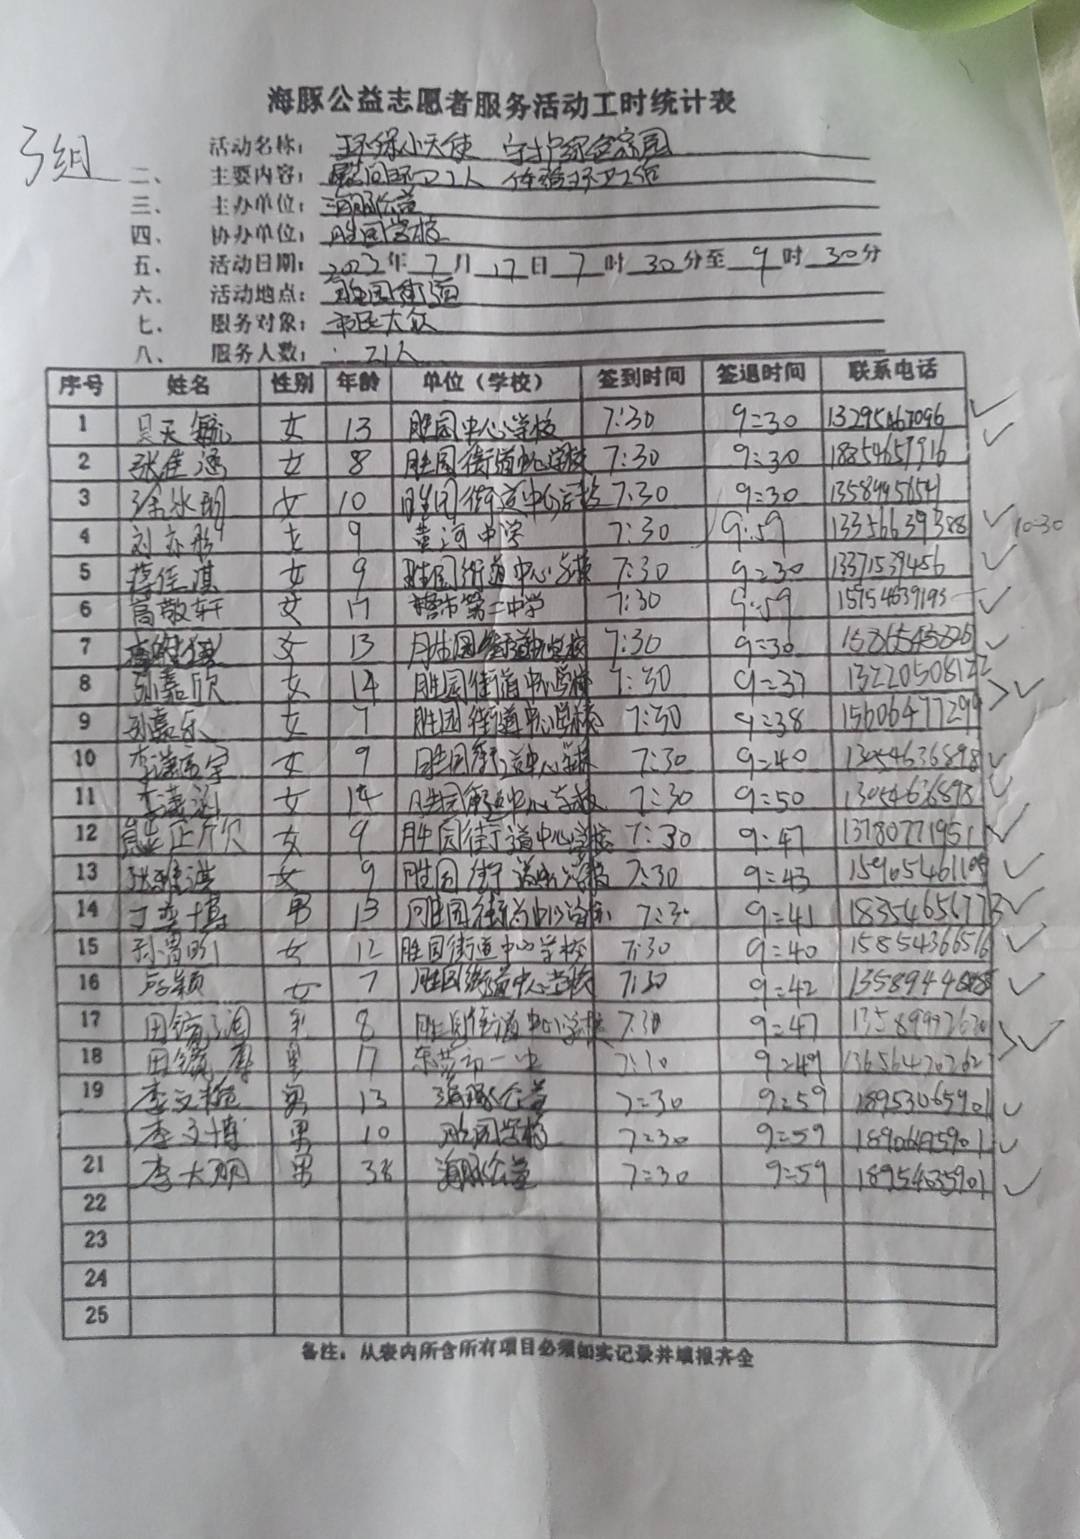 海豚公益志愿者服务活动工时统计表
3组
活动名称: 环保小天使 守护绿色家园
二、 主要内容: 慰问环卫工人 体验环卫工作
三、 主办单位: 海豚公益
四、 协办单位: 胜园学校
五、 活动日期: 2023年7月17日7时30分至9时30分
六、 活动地点: 胜园街道
七、 服务对象: 市民大众
八、 服务人数: 21人
序号 姓名 性别 年龄 单位(学校) 签到时间 签退时间 联系电话
1 女 13 胜园中心学校 7:30 9:30
2 张佳涵 女 8 胜园街道中心学校 7:30 9:30 18854657916
3 徐冰玥 女 10 胜园街道中心学校 7:30 9:30
4 刘亦彤 女 9 黄河中学 7:30 9:59 13356639388 10-30
5 蒋佳淇 女 9 胜园街道中心学校 7:30 9:30 13371539456
6 高敬轩 女 17 市第二中学 7:30 9:59 15954639193
7 女 13 胜园街道中心学校 7:30 9:30
8 孙嘉欣 女 14 胜园街道中心学校 7:30 9:37
9 孙嘉乐 女 7 胜园街道中心学校 7:30 9:38 15606477299
10 女 9 胜园街道中心学校 7:30 9:40 13054636898
11 李潇涵 女 14 胜园街道中心学校 7:30 9:50 13054636898
12 女 9 胜园街道中心学校 7:30 9:47 13780771951
13 张雅淇 女 9 胜园街道中心学校 7:30 9:43
14 丁奕博 男 13 胜园街道中心学校 7:30 9:41 18354656773
15 女 12 胜园街道中心学校 7:30 9:40 15854366516
16 女 7 胜园街道中心学校 7:30 9:42
17 男 8 胜园街道中心学校 7:30 9:47
18 男 17 东营市一中 7:30 9:49
19 男 13 海豚公益 7:30 9:59 18953065901
李文博 男 10 胜园学校 7:30 9:59 18906495901
21 李大朋 男 38 海豚公益 7:30 9:59 18954635901
22
23
24
25
备注: 从表内所含所有项目必须如实记录并填报齐全